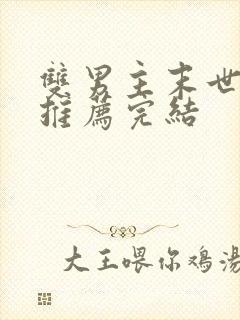 雙男主末世
推薦完結
大王喂你鸡湯